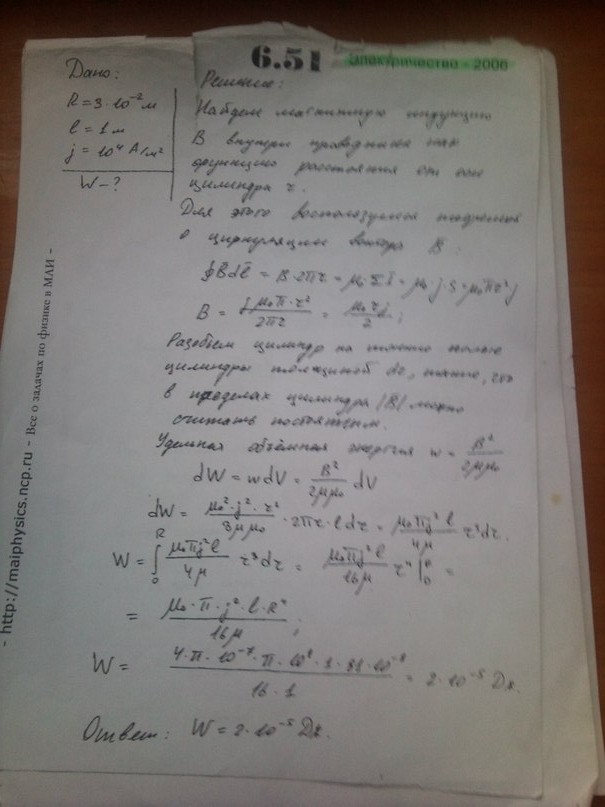 6.51 Электричество - 2000
Дано:
R = 3·10⁻² м
l = 1 м
j = 10⁴ А/м²
W - ?
Решение:
Найдем магнитную индукцию
B внутри проводника как
функцию расстояния от оси
цилиндра r.
Для этого воспользуемся теоремой
о циркуляции вектора B⃗:
∮B⃗dl⃗ = B·2πr = μ₀·ΣI = μ₀·j·S = μ₀πr²j
B = jμ₀π·r² / 2πr = μ₀rj / 2;
Разобьем цилиндр на тонкие полые
цилиндры толщиной dr, такие, что
в пределах цилиндра |B| можно
считать постоянным.
Удельная объёмная энергия w = B² / 2μμ₀
dW = wdV = B² / 2μμ₀ dV
dW = μ₀²·j²·r² / 8μμ₀ · 2πr·l dr = μ₀πj²l / 4μ r³dr.
W = ∫₀ᴿ μ₀πj²l / 4μ r³dr = μ₀πj²l / 16μ r⁴ |₀ᴿ =
= μ₀·π·j²·l·R⁴ / 16μ;
W = 4·π·10⁻⁷·π·10⁸·1·81·10⁻⁸ / 16·1 = 2·10⁻⁵ Дж.
Ответ: W = 2·10⁻⁵ Дж.
- http://maiphysics.ncp.ru - Все о задачах по физике в МАИ -